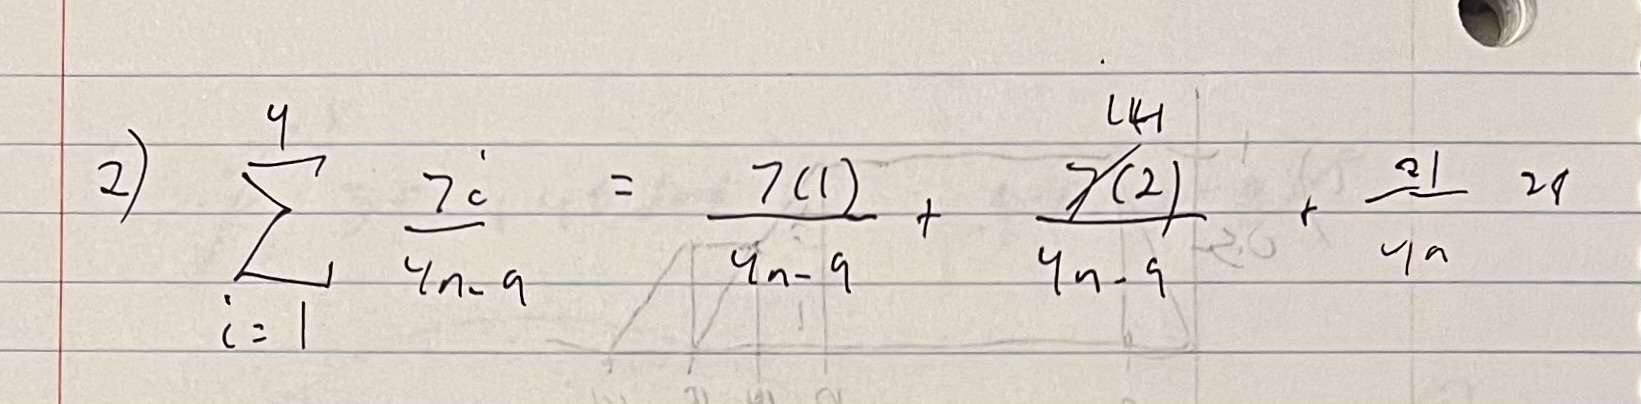 2) 4 Σ i=1 7i/4n-9 = 7(1)/4n-9 + 7(2)/4n-9 + 21/4n 28